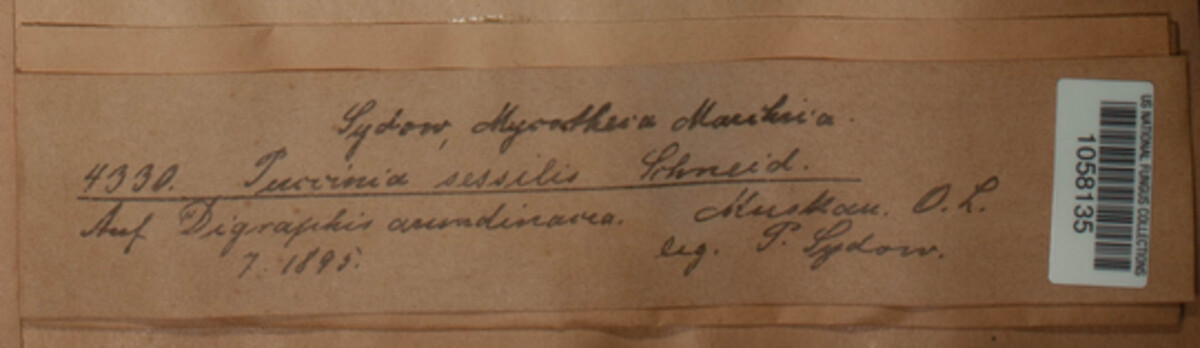 Sydow, Mycotheca Marchica.
4330. Puccinia sessilis Schneid.
Auf Digraphis arundinacea. Muskau. O. L.
7. 1895. leg. P. Sydow.
US NATIONAL FUNGUS COLLECTIONS
1058135